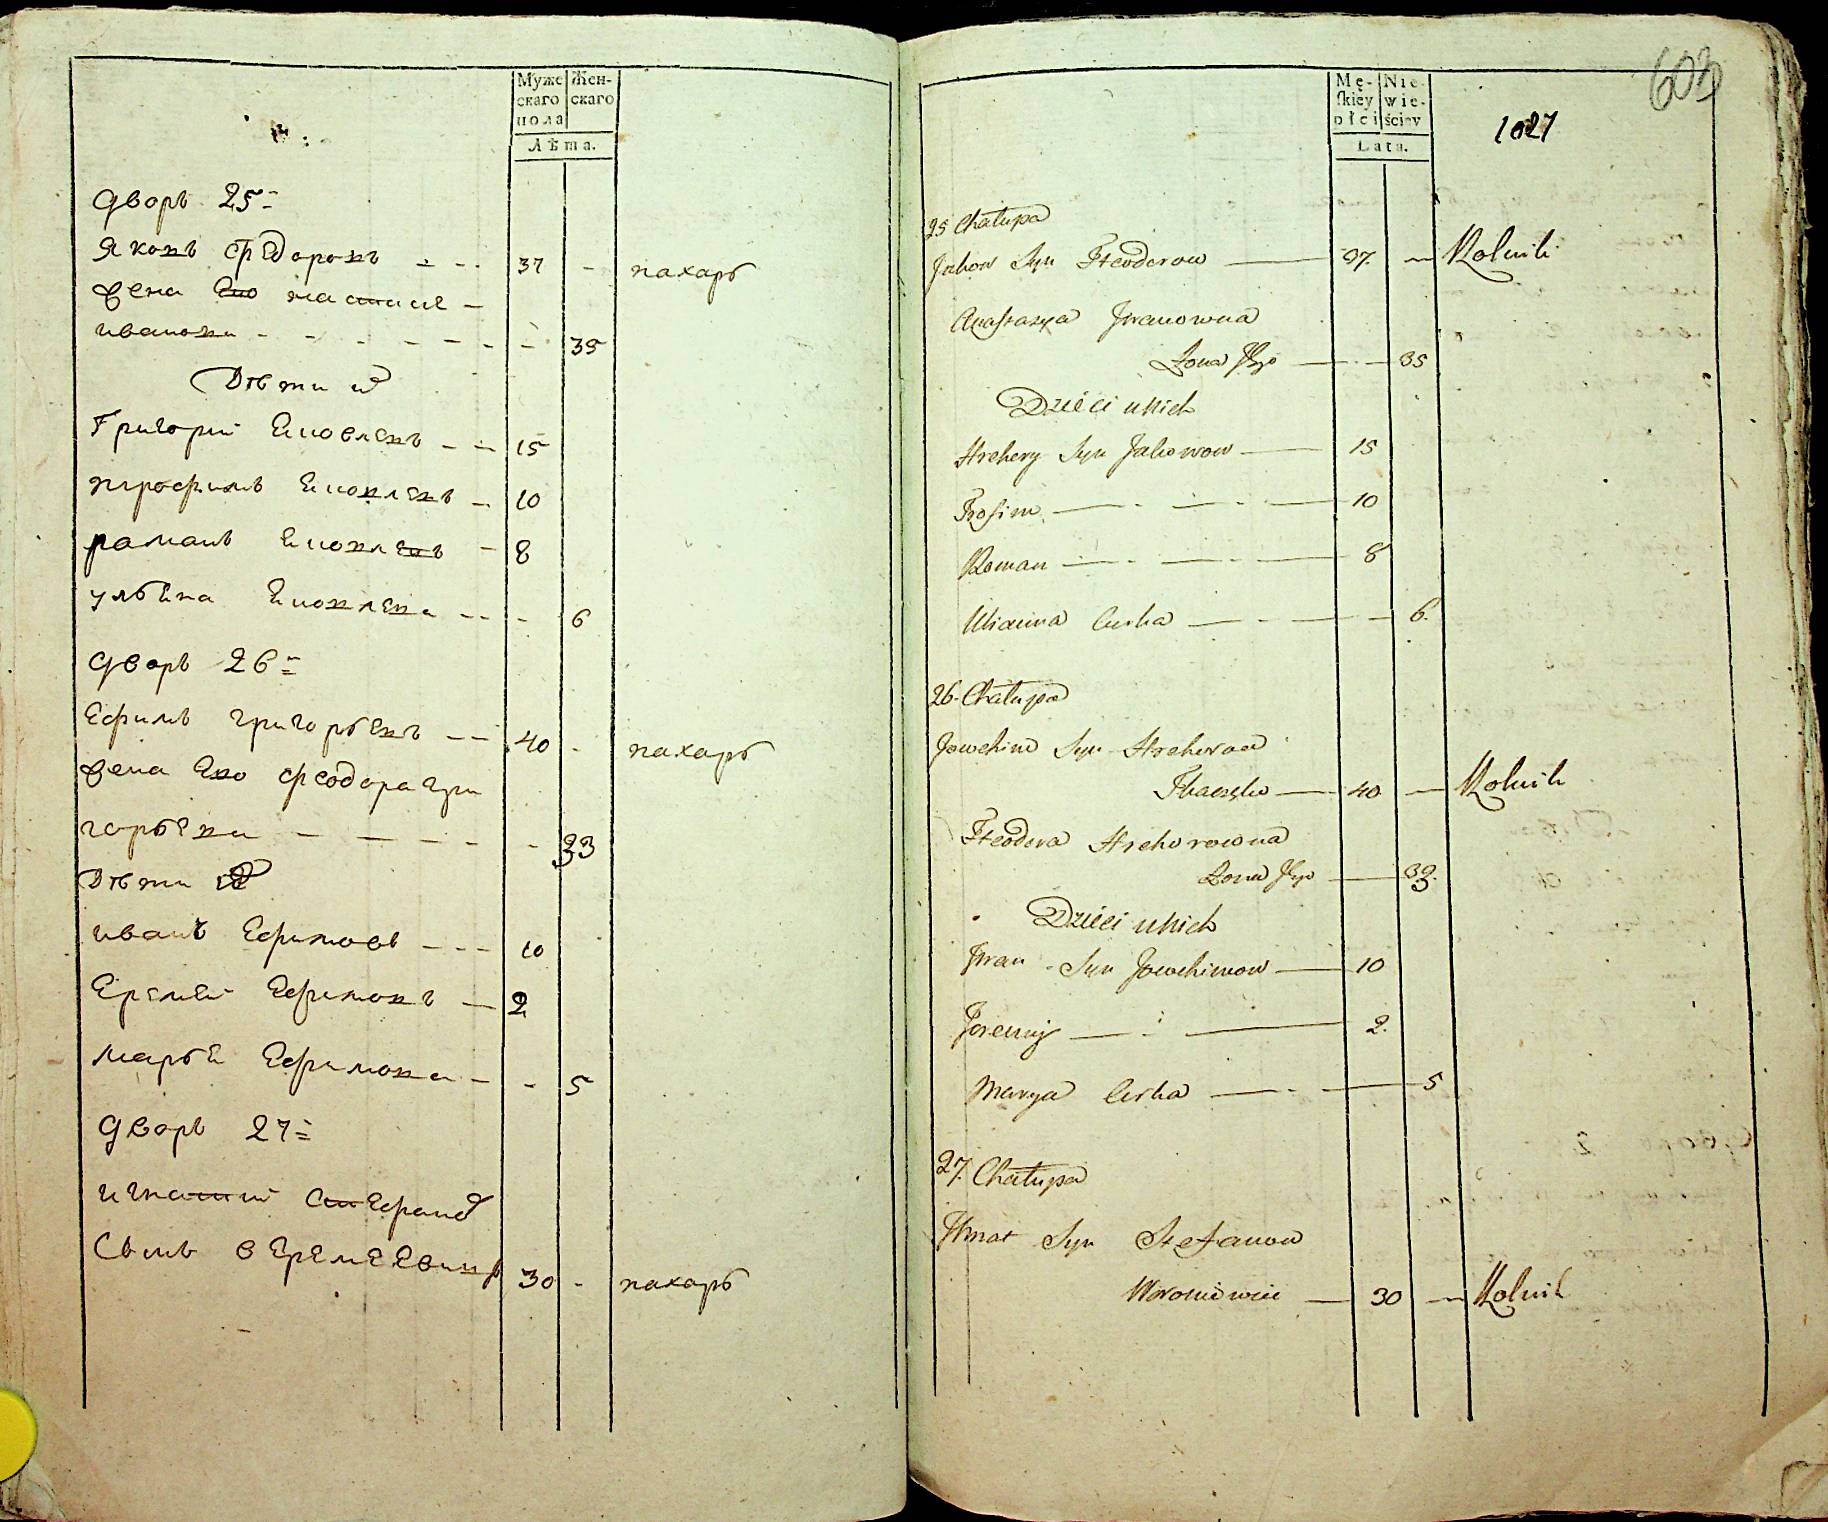 Муже
скаго
пола
Жен-
скаго
Лѣта.
дворъ 25=
Яковъ Федоровъ 37 - пахарь
жена Его настасье
иванова 35
Дѣти их
Григорий Еиовлевъ 15
трофимъ Еиовлевъ 10
раманъ Еиовлевъ 8
ульена Еиовлева 6
дворъ 26=
Ефимъ григорьевъ 40 - пахарь
жена Ево феодора гри
горьева 33
Дѣти их
иванъ Ефимовъ 10
Еремей Ефимовъ 2
марье Ефимова 5
дворъ 27=
игнатий Стефанов
Сынъ 30 - пахарь
603
1027
Mę-
skiey
płci
Nie-
wie-
ściey
Lata.
25 Chałupa
Jakow Syn Fteodorow 37. Rolnik
Anastazya Jwanowna
Żona Jego 35
Dzieci u Nich
Hrehory Syn Jakowow 15
Trofim 10
Roman 8
Ulianna Curka 6.
26. Chałupa
Jowchim Syn Hrehorow
40 Rolnik
Fteodora Hrehorowna
Żona Jego 33.
Dzieci u Nich
Jwan Syn Jowchimow 10
Jeremij 2.
Marya Curka 5
27. Chałupa
Jhnat Syn Stefanow
30 Rolnik